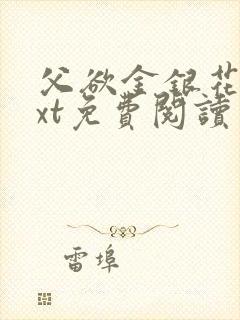 父欲金銀花
xt免費閱讀
雷埠